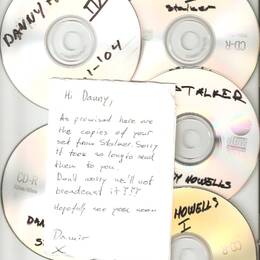 DANNY
IV
1-104
Stalker
CD-R
Hi Danny,
As promised here are
the copies of your
set from Stalker. Sorry
it took so long to send
them to you.
Don't worry we'll not
broadcast it!!!
Hopefully see you soon
Damir
X
STALKER
HOWELLS
CD-R
HOWELLS
I
CD-R